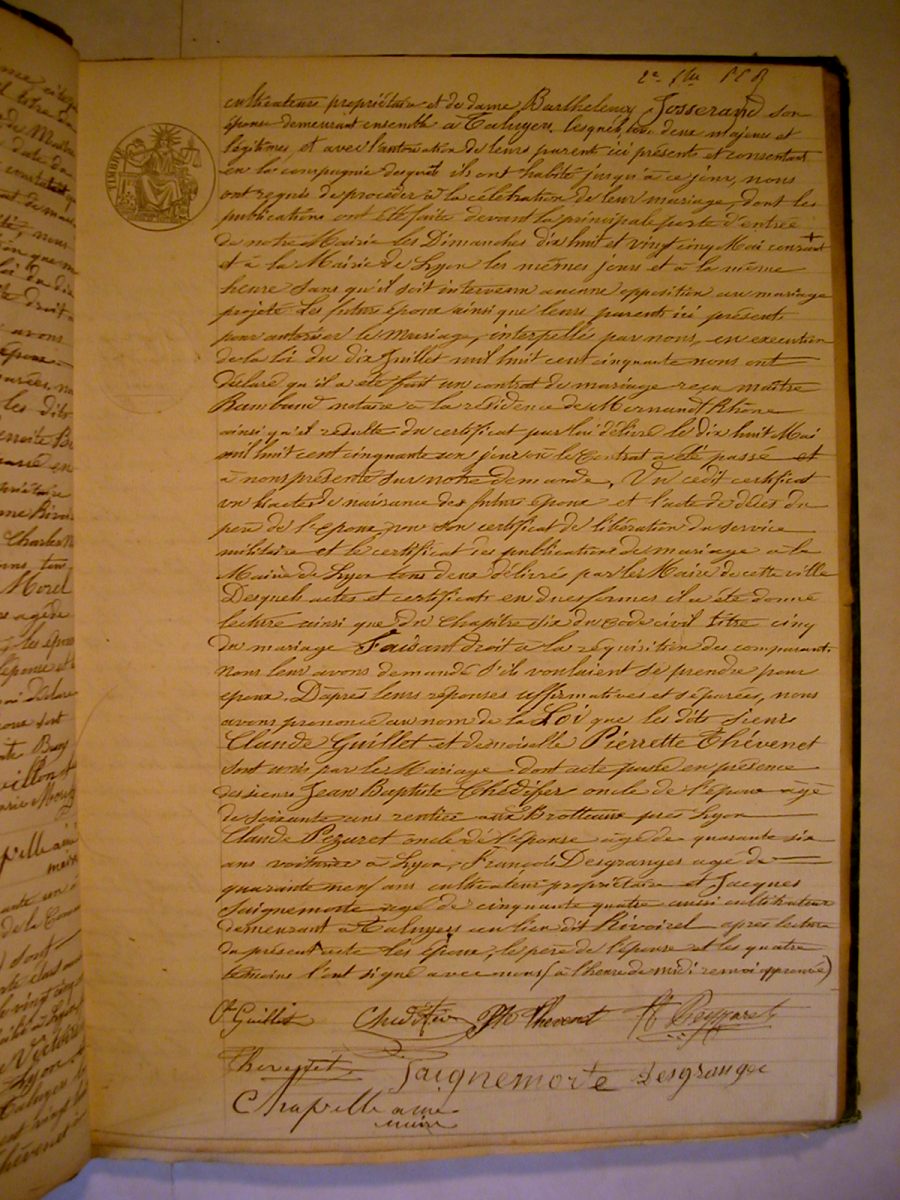 2e
TIMBRE
cultivateurs propriétaire et de dame Barthelemy Josserand son
épouse demeurant ensemble à Taluyers, lesquels tous deux majeurs et
légitimes, et avec l'autorisation de leurs parents ici présents et consentant
en la compagnie desquels ils ont habité jusqu'à ce jour, nous
ont requis de procéder à la célébration de leur mariage, dont les
publications ont été faite devant la principale porte d'entrée
de notre Mairie les Dimanches dix huit et vingt cinq Mai courant +
et à la Mairie de Lyon les mêmes jours et à la même
heure sans qu'il soit intervenu aucune opposition au mariage
projeté. Les futurs époux ainsi que leurs parents ici présents
pour autoriser le Mariage, interpellé par nous, en exécution
de la loi du dix Juillet mil huit cent cinquante nous ont
déclaré qu'il a été fait un contrat de mariage reçu maître
Rambaud notaire à la résidence de Mornant Rhône
ainsi qu'il résulte du certificat par lui délivré le dix huit Mai
mil huit cent cinquante un jour où le Contrat a été passé et
à nous présenté sur notre demande, Vu cedit certificat
vu les actes de naissance des futurs époux et l'acte de décès du
père de l'époux, vu son certificat de libération du service
militaire et le certificat des publications de mariage à la
Mairie de Lyon tous deux délivrés par le Maire de cette ville
Desquels actes et certificats en dues formes il a été donné
lecture ainsi que du Chapitre six du code civil titre cinq
du mariage Faisant droit à la réquisition des comparants
nous leur avons demandé s'ils voulaient se prendre pour
époux. D'après leurs réponses affirmatives et séparées, nous
avons prononcé au nom de la Loi que les dits sieurs
Claude Guillet et demoiselle Pierrette Thévenet
sont unis par le Mariage dont acte passé en présence
des sieurs Jean Baptiste Chédifer oncle de l'époux âgé
de soixante ans rentier aux Brotteaux près Lyon
Claude Pezaret oncle de l'épouse âgé de quarante six
ans voiturier à Lyon, François Desgranges agé de
quarante neuf ans cultivateur propriétaire et Jacques
Saignemorte agé de cinquante quatre aussi cultivateur
demeurant à Taluyers au lieu dit Rivoirel après lecture
du présent acte les époux, le père de l'épouse et les quatre
temoins l'ont signé avec nous (à l'heure de midi renvoi approuvé)
Cl Guillet Thevenet
Thevenet Saignemorte desgranges
Chapelle ainé
maire